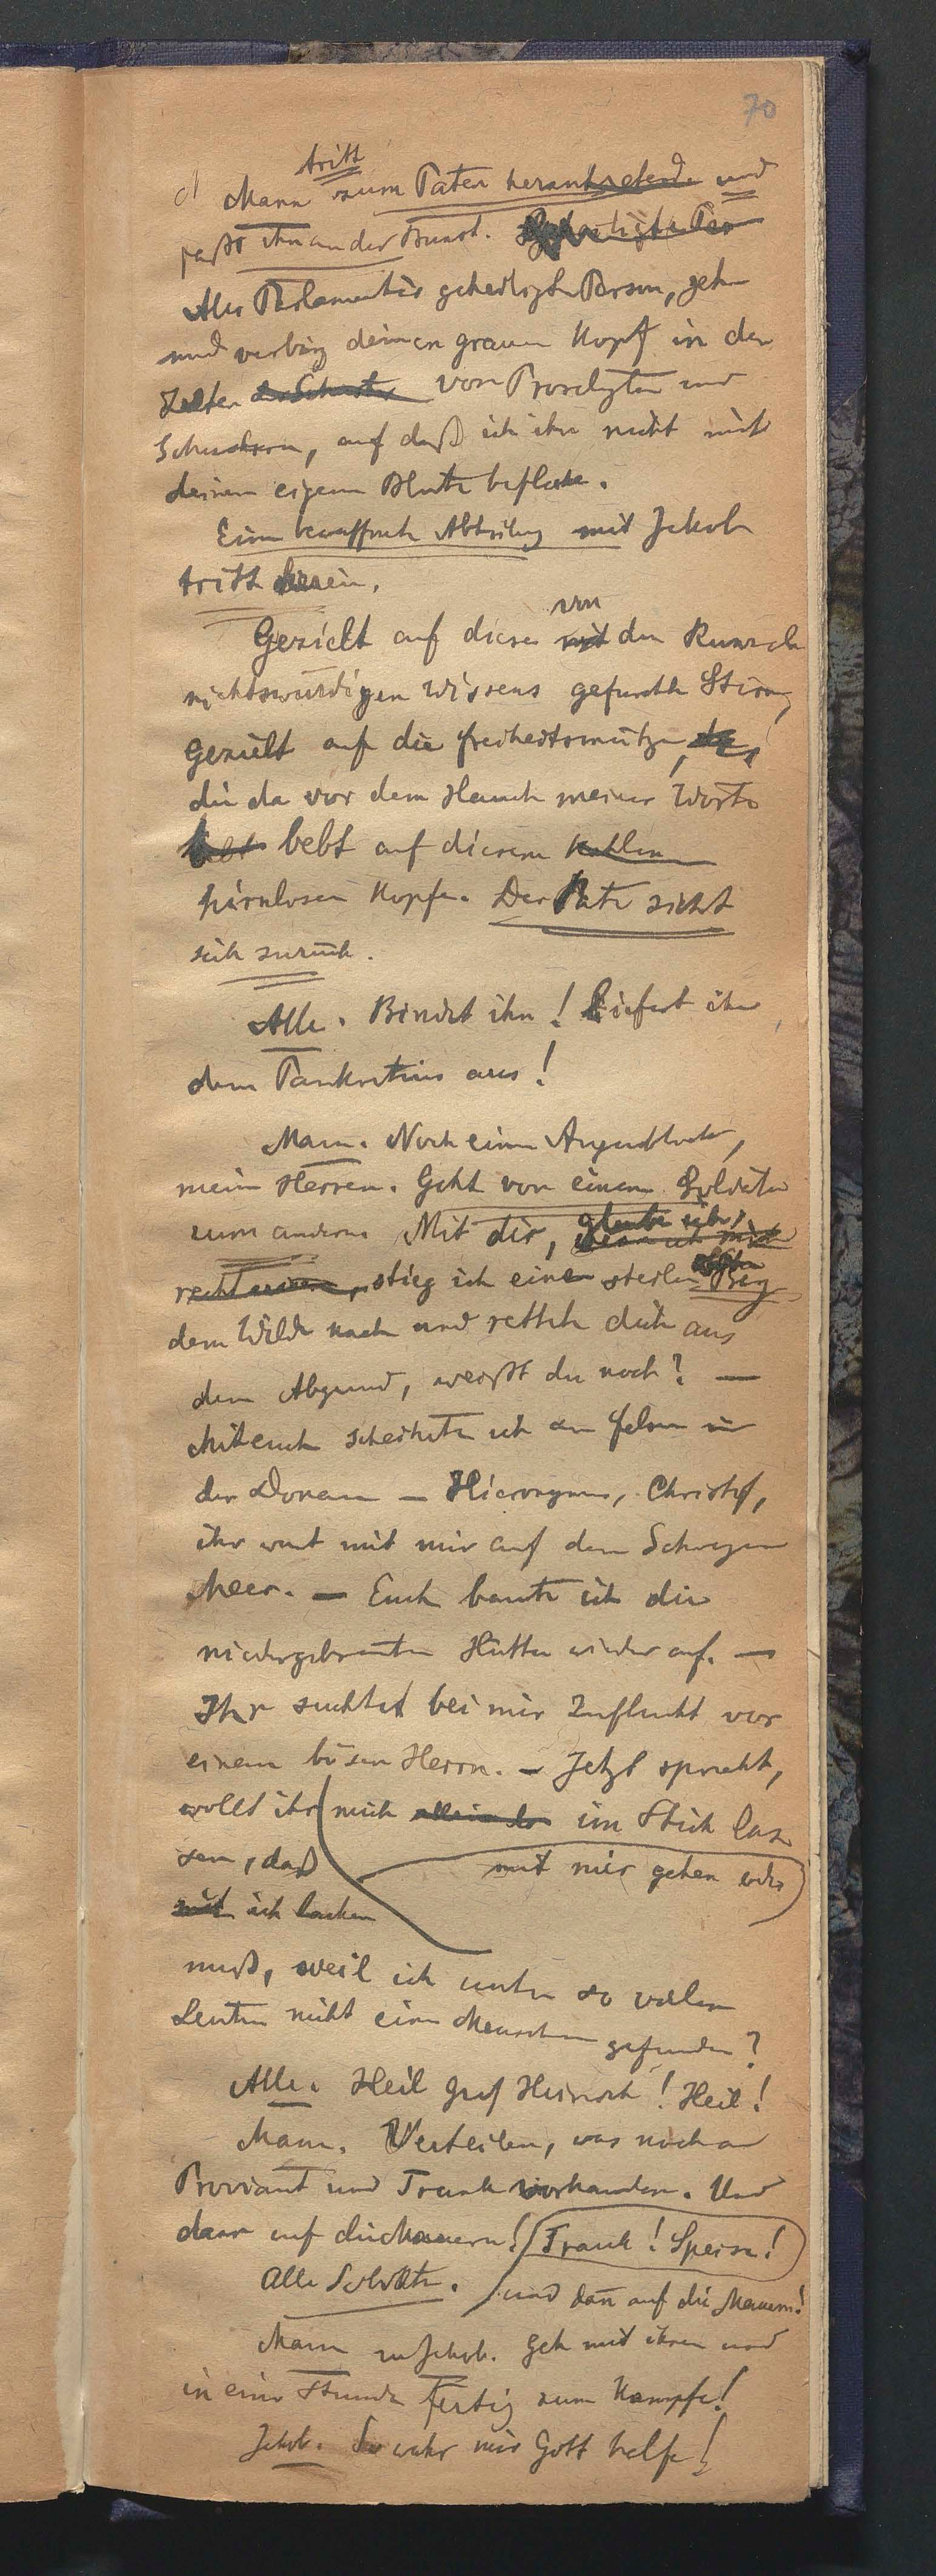 70
tritt
Mann zum Paten herantretend und
faßt ihn an der Brust.
Alles Parlamentärs geheiligte Person, geh
und verbirg deinen grauen Kopf in den
Zelten der Schuster von Proselyten und
Schustern, auf daß ich ihn nicht mit
deinem eigenen Blute beflecke.
Eine bewaffnete Abteilung mit Jakob
tritt herein.
Gezielt auf diese mit von den Runzeln
nichtswürdigen Wissens gefurchte Stirn,
Gezielt auf die Freiheitsmütze,
die da vor dem Hauch meiner Worte
bebt bebt auf diesem kahlen
hirnlosen Kopfe. Der Pate zieht
sich zurück.
Alle. Bindet ihn! Liefert ihn
dem Pankratius aus!
Mann. Noch einen Augenblick,
meine Herren. Geht von einem Soldaten
zum andern. Mit dir, glaube ich,
stieg ich einen steilen Berg
dem Wilde nach und rettete dich aus
dem Abgrund, weißt du noch? —
Mit euch scheiterte ich am Felsen in
der Donau — Hieronymus, Christof,
ihr wart mit mir auf dem Schwarzen
Meer. — Euch baute ich die
niedergebrannten Hütten wieder auf. —
Ihr suchtet bei mir Zuflucht vor
einem bösen Herrn. — Jetzt sprecht,
wollt ihr mich im Stich las-
sen, daß mit mir gehen oder
ich lachen
muß, weil ich unter so vielen
Leuten nicht einen Menschen gefunden?
Alle. Heil Graf Heinrich! Heil!
Mann. Verteilen, was noch an
Proviant und Trank vorhanden. Und
dann auf die Mauern! Trank! Speise!
Alle Soldaten. und dann auf die Mauern!
Mann zu Jakob. Geh mit ihnen und
in einer Stunde fertig zum Kampfe!
Jakob. So wahr mir Gott helfe!